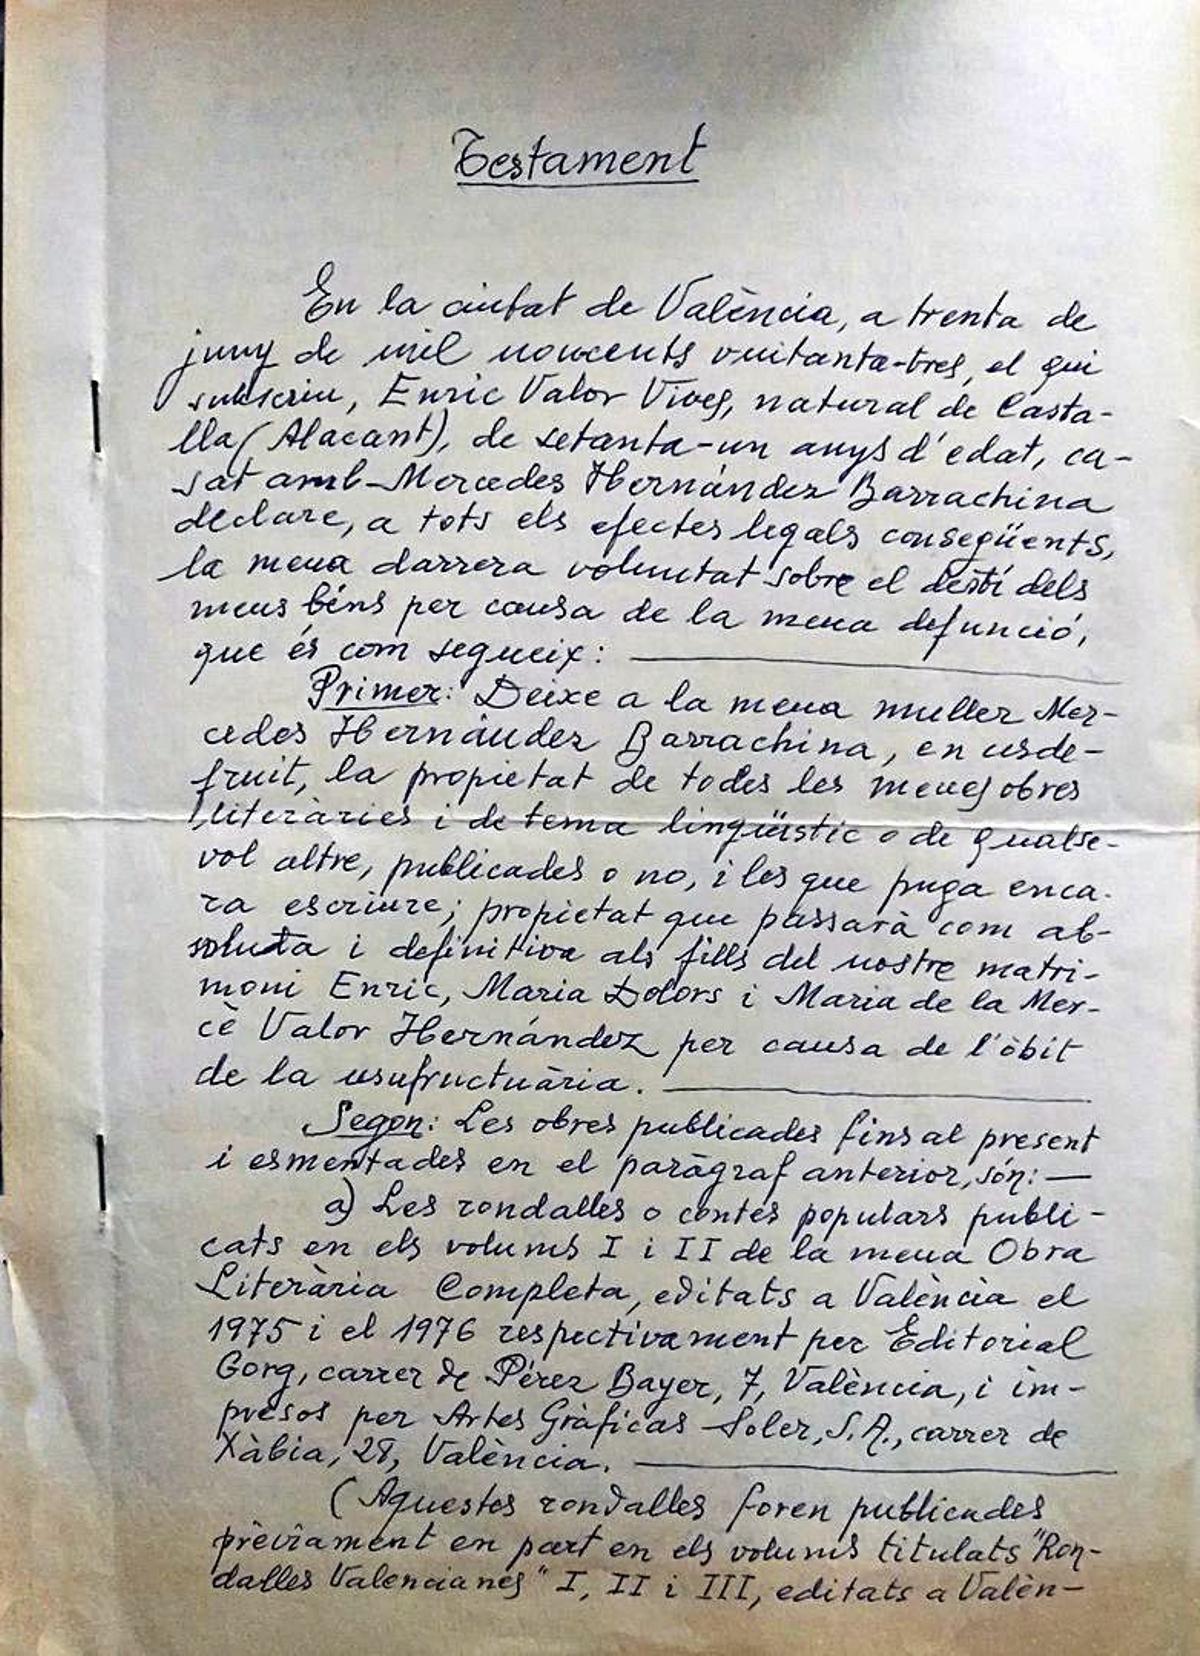 Testament
En la ciutat de València, a trenta de
juny de mil noucents vuitanta-tres, el qui
subscriu, Enric Valor Vives, natural de Casta-
lla (Alacant), de setanta-un anys d'edat, ca-
sat amb Mercedes Hernández Barrachina
declare, a tots els efectes legals consegüents,
la meua darrera voluntat sobre el destí dels
meus béns per causa de la meua defunció,
que és com segueix:
Primer: Deixe a la meua muller Mer-
cedes Hernández Barrachina, en usde-
fruit, la propietat de todes les meues obres
literàries i de tema lingüístic o de qualse-
vol altre, publicades o no, i les que puga enca-
ra escriure; propietat que passarà com ab-
soluta i definitiva als fills del nostre matri-
moni Enric, Maria Dolors i Maria de la Mer-
cè Valor Hernández per causa de l'òbit
de la usufructuària.
Segon: Les obres publicades fins al present
i esmentades en el paràgraf anterior, són:
a) Les rondalles o contes populars publi-
cats en els volums I i II de la meua Obra
Literària Completa, editats a València el
1975 i el 1976 respectivament per Editorial
Gorg, carrer de Pérez Bayer, 7, València, i im-
presos per Artes Gràficas Soler, S.A., carrer de
Xàbia, 28, València.
(Aquestes rondalles foren publicades
prèviament en part en els volums titulats "Ron-
dalles Valencianes" I, II i III, editats a Valèn-